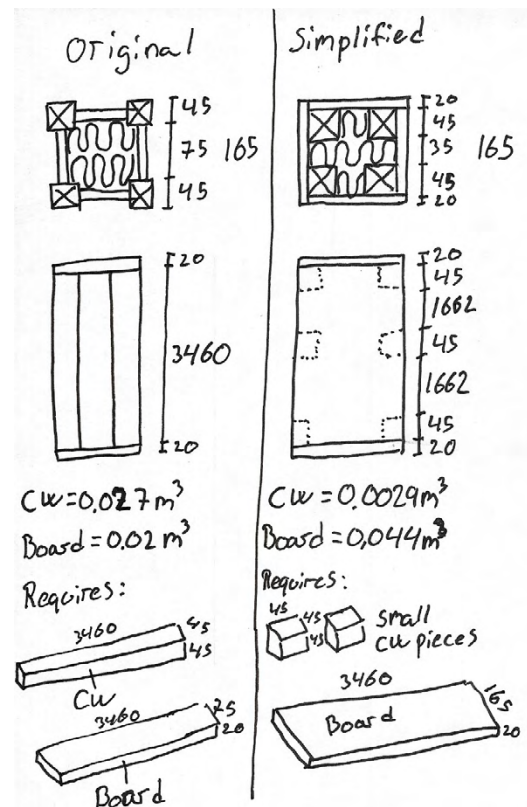 Original
45
75
165
45
20
3460
20
CW=0,027m³
Board=0,02m³
Requires:
3460
45
45
CW
3460
75
20
Board
Simplified
20
45
35
165
45
20
20
45
1662
45
1662
45
20
CW=0,0029m³
Board=0,044m³
Requires:
45
45
45
small
CW pieces
3460
165
Board
20